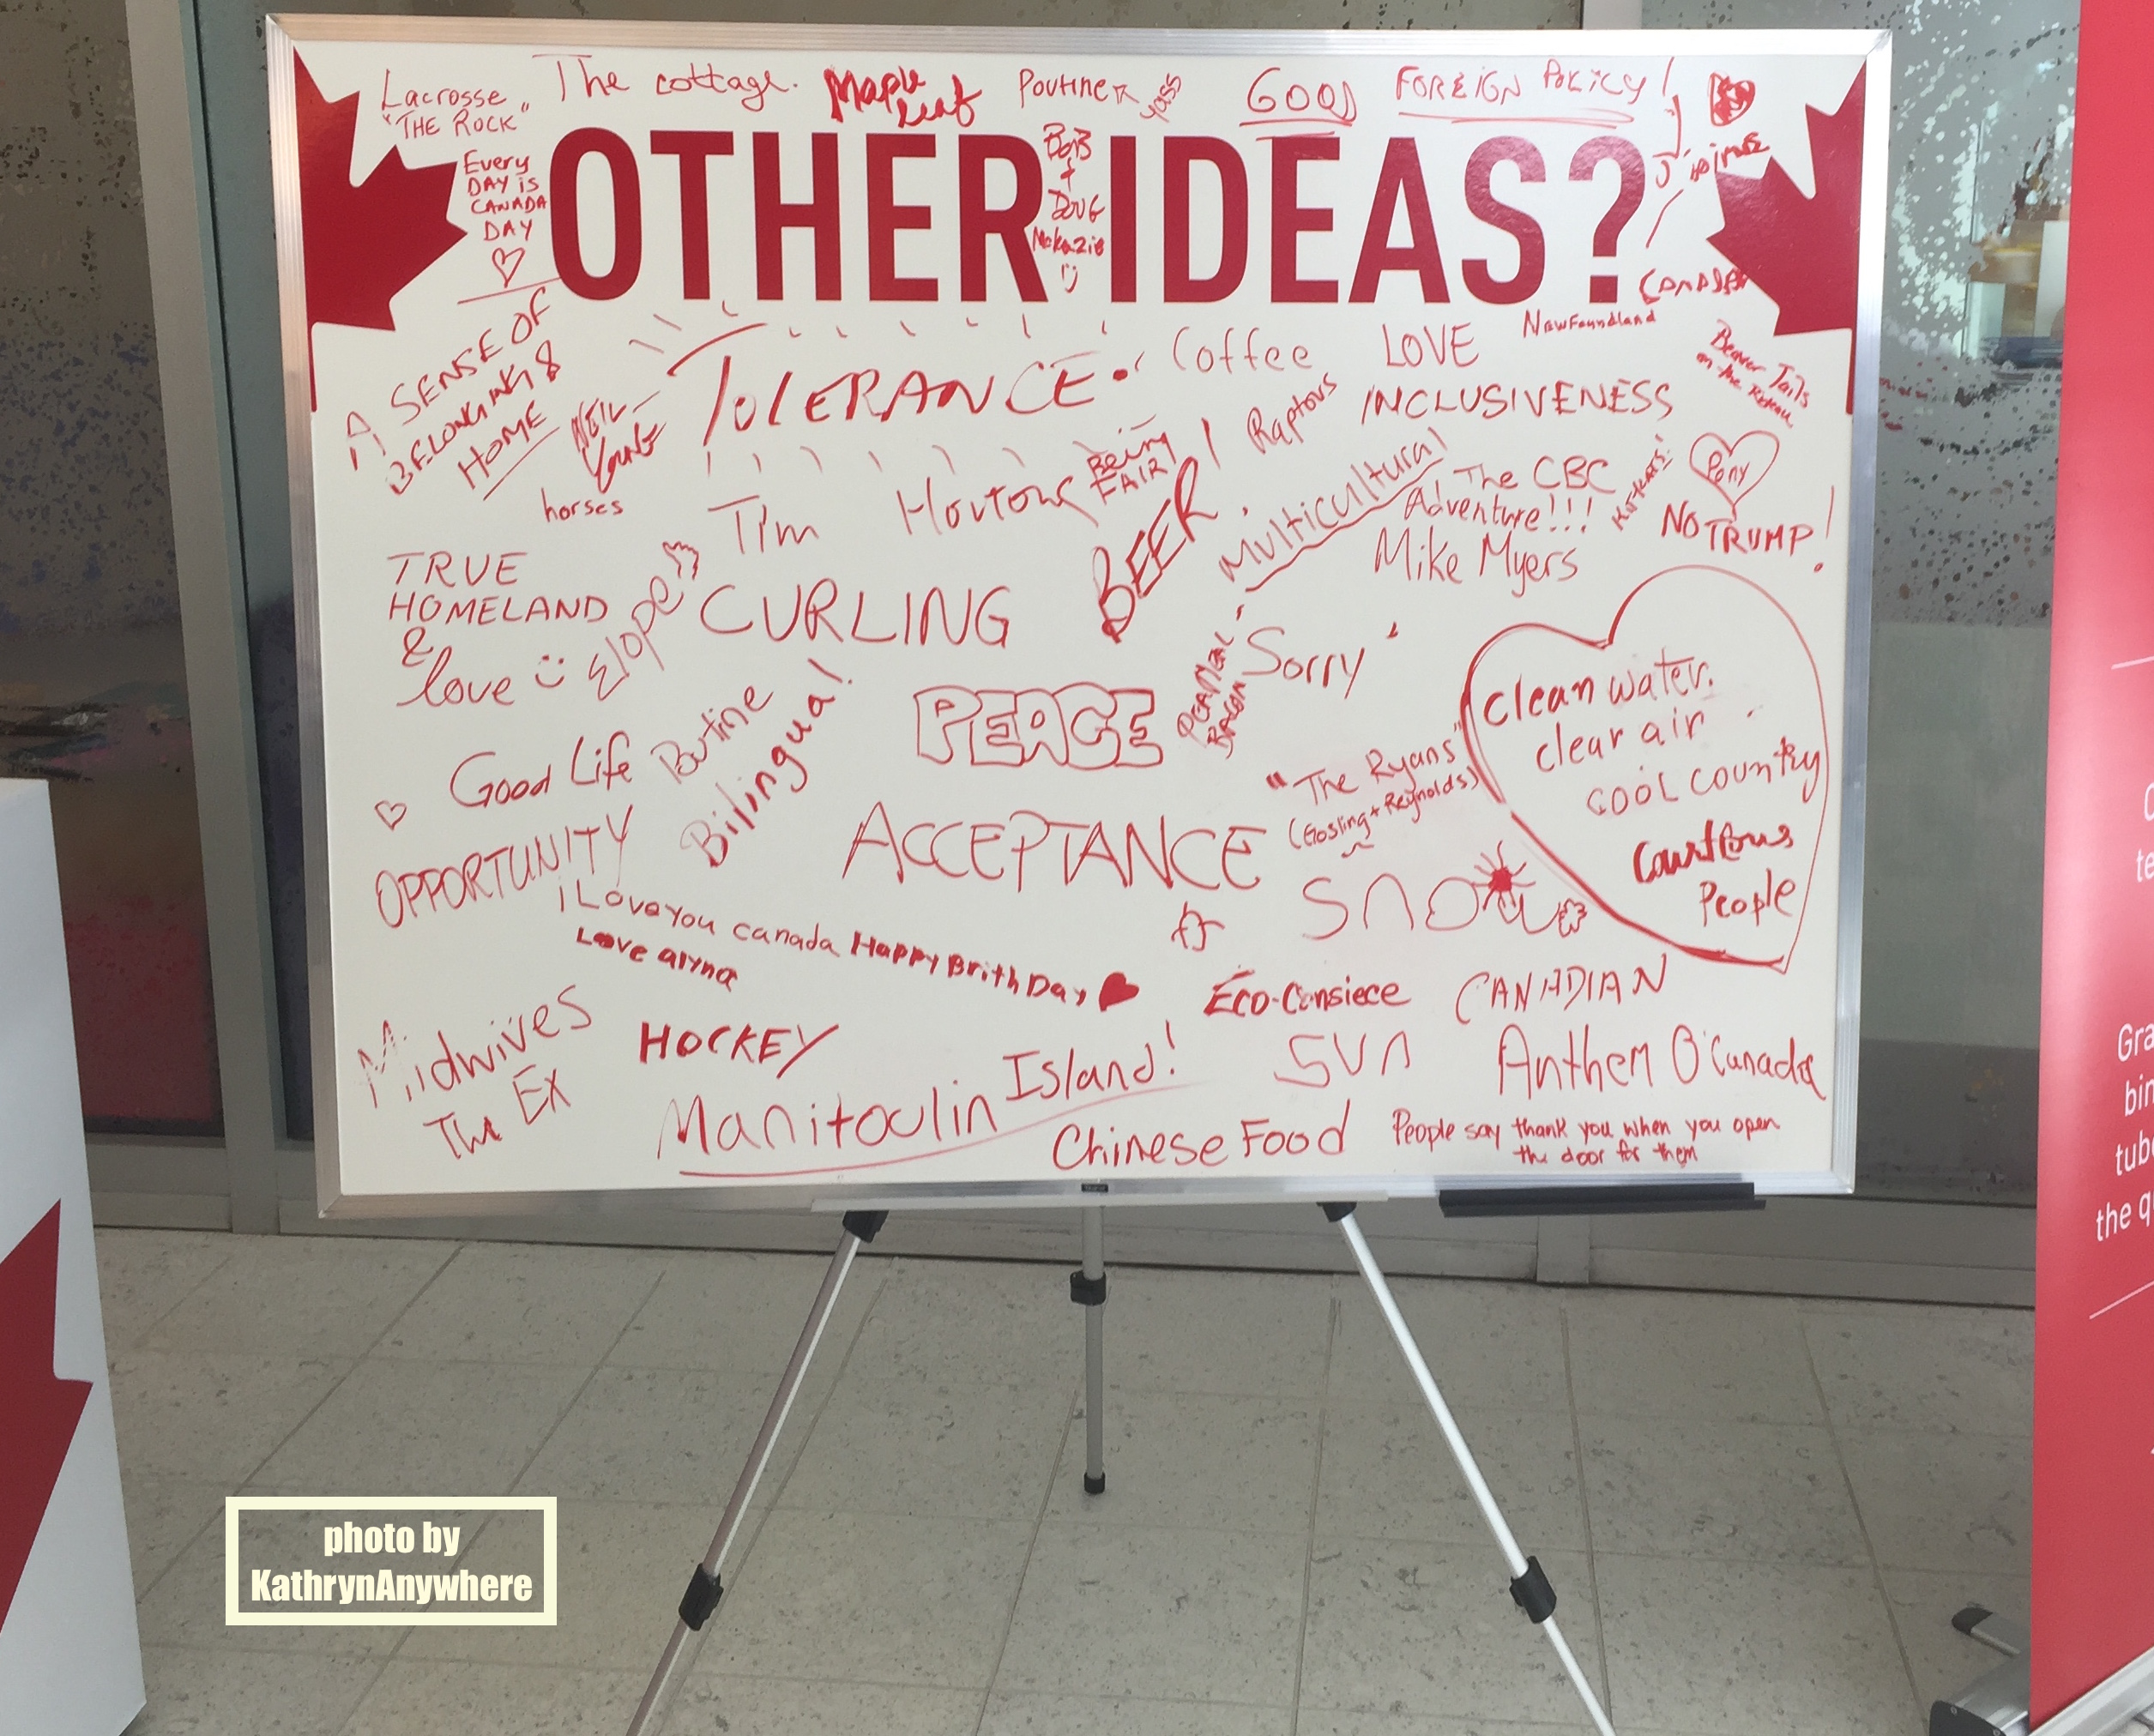 Lacrosse
"THE ROCK"
The cottage.
Maple
Leaf
Poutine
yass
GOOD
FOREIGN POLICY!
OTHER IDEAS?
Every
DAY is
CANADA
DAY
BOB
+
DOUG
Mckazie
A SENSE OF
BELONGING &
HOME
NEIL
YOUNG
horses
TOLERANCE
Coffee
LOVE
Newfoundland
Beaver Tails
on the Rideau
INCLUSIVENESS
Raptors
Being
FAIR
Tim Hortons
BEER!
Multicultural
The CBC
Adventure!!!
Mike Myers
Pony
NO TRUMP!
TRUE
HOMELAND
&
love
Elope
CURLING
Sorry
PEAMEAL
BACON
PEACE
clean water.
clear air
cool country
Courtious
People
Good Life
Poutine
Bilingual!
"The Ryans"
(Gosling + Reynolds)
OPPORTUNITY
ACCEPTANCE
Snow
i Love You canada Happy Brith Day
Love aryna
Eco-Consiece
CANADIAN
Midwives
The Ex
HOCKEY
Manitoulin Island!
Sun
Anthem O'Canada
Chinese Food
People say thank you when you open
the door for them
Gra
bin
tub
the q
photo by
KathrynAnywhere